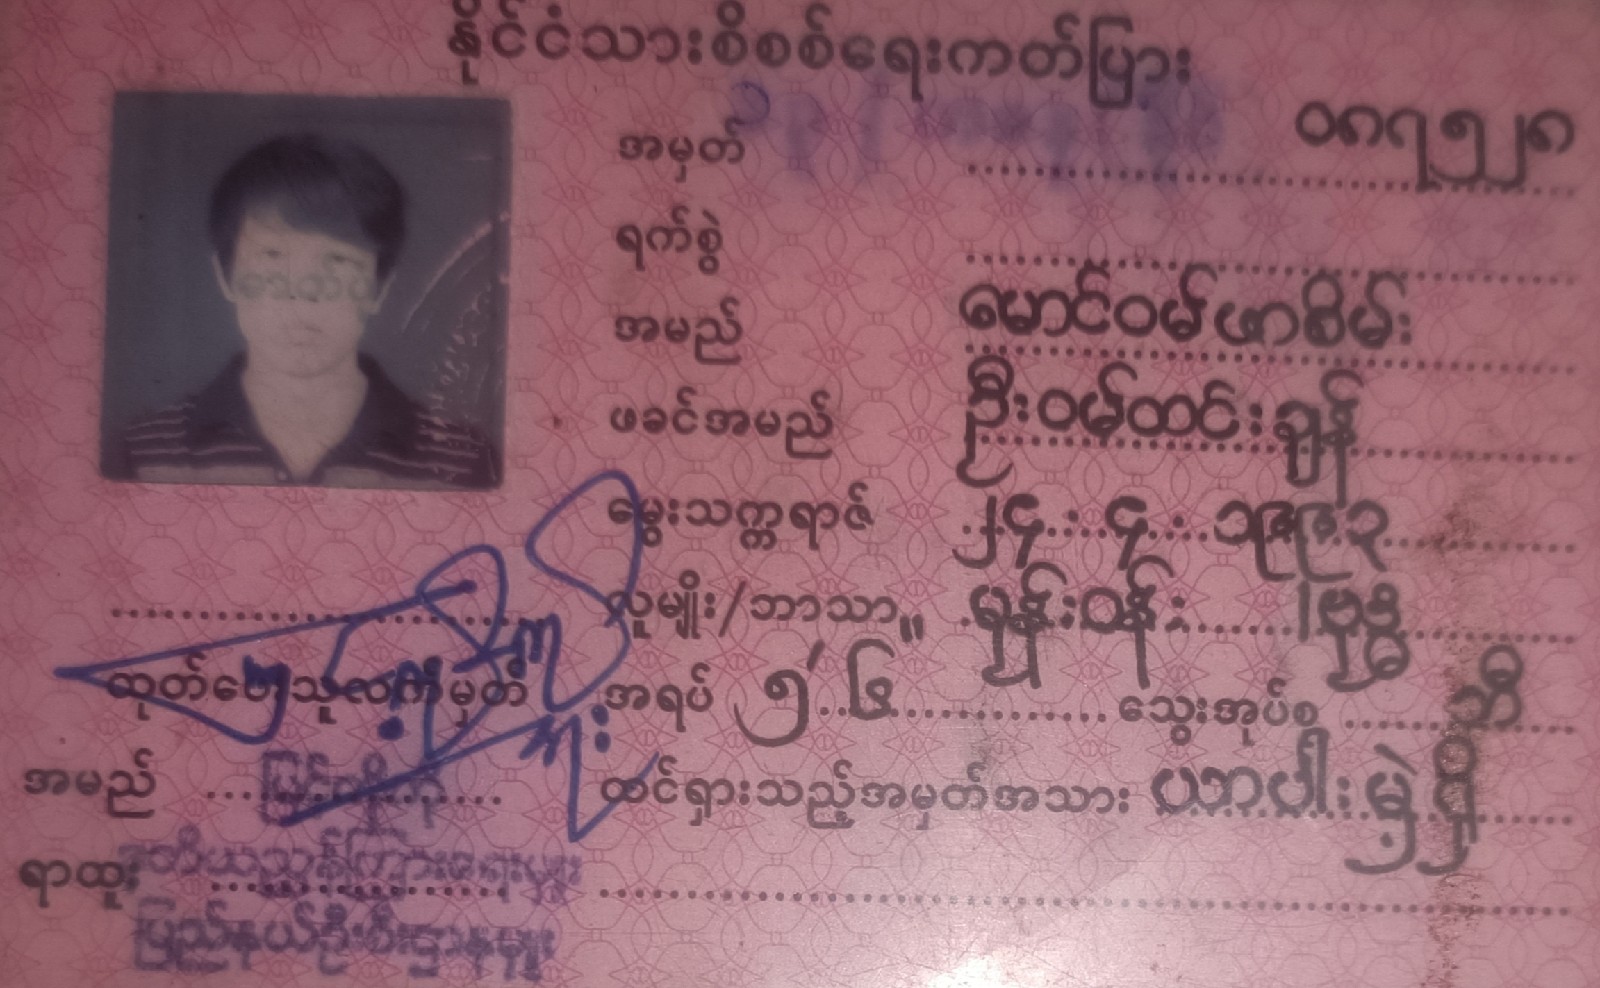 နိုင်ငံသားစိစစ်ရေးကတ်ပြား
အမှတ် ၀၈၇၅၂၈
ရက်စွဲ
အမည် မောင်ဝမ်ဖာစိမ်း
ဖခင်အမည် ဦးဝမ်ထင်းချန်
မွေးသက္ကရာဇ် ၂၄.၄.၁၉၉၃
လူမျိုး/ဘာသာ ရှမ်း /ဗုဒ္ဓ
အရပ် ၅'၆ သွေးအုပ်စု ဘီ
ထင်ရှားသည့်အမှတ်အသား ယာပါးမှဲ့ရှိ
ထုတ်ပေးသူလက်မှတ်
အမည်
ရာထူး
ပြည်နယ်ဦးစီးဌာနမှူး